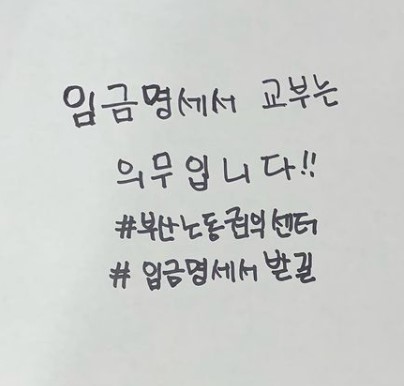 임금명세서 교부는
의무입니다!!
#부산노동권익센터
# 임금명세서 받길